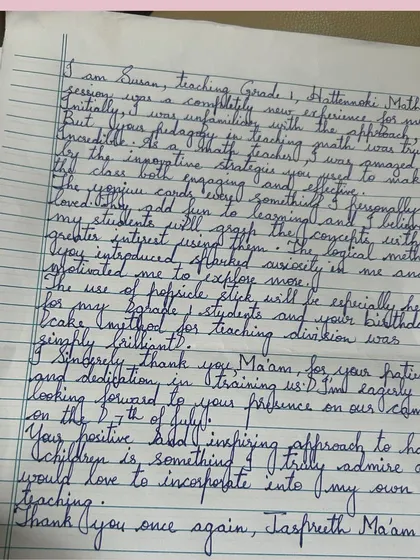 I am Susan, teaching Grade 1, Hattennoki Math
session was a completely new experience for
Initially, I was unfamiliar with the approach,
But your pedagogy in teaching math was
incredible. As a math teacher, I was amazed
by the innovative strategies you used to make
the class both engaging and effective.
The yonjuu cards were something I personally
loved. They add fun to learning and I believe
my students will grasp the concepts with
greater interest using them. The logical
you introduced sparked curiosity in me and
motivated me to explore more.
The use of popsicle stick will be especially
for my grade 1 students and your
(cake method for teaching division was
simply brilliant).
I sincerely thank you, Ma'am, for your
and dedication in training us. I'm eagerly
looking forward to your presence on our
on the 27th of July.
Your positive and inspiring approach to
children is something I truly admire
would love to incorporate into my own
teaching.
Thank you once again, Jaspreeth Ma'am